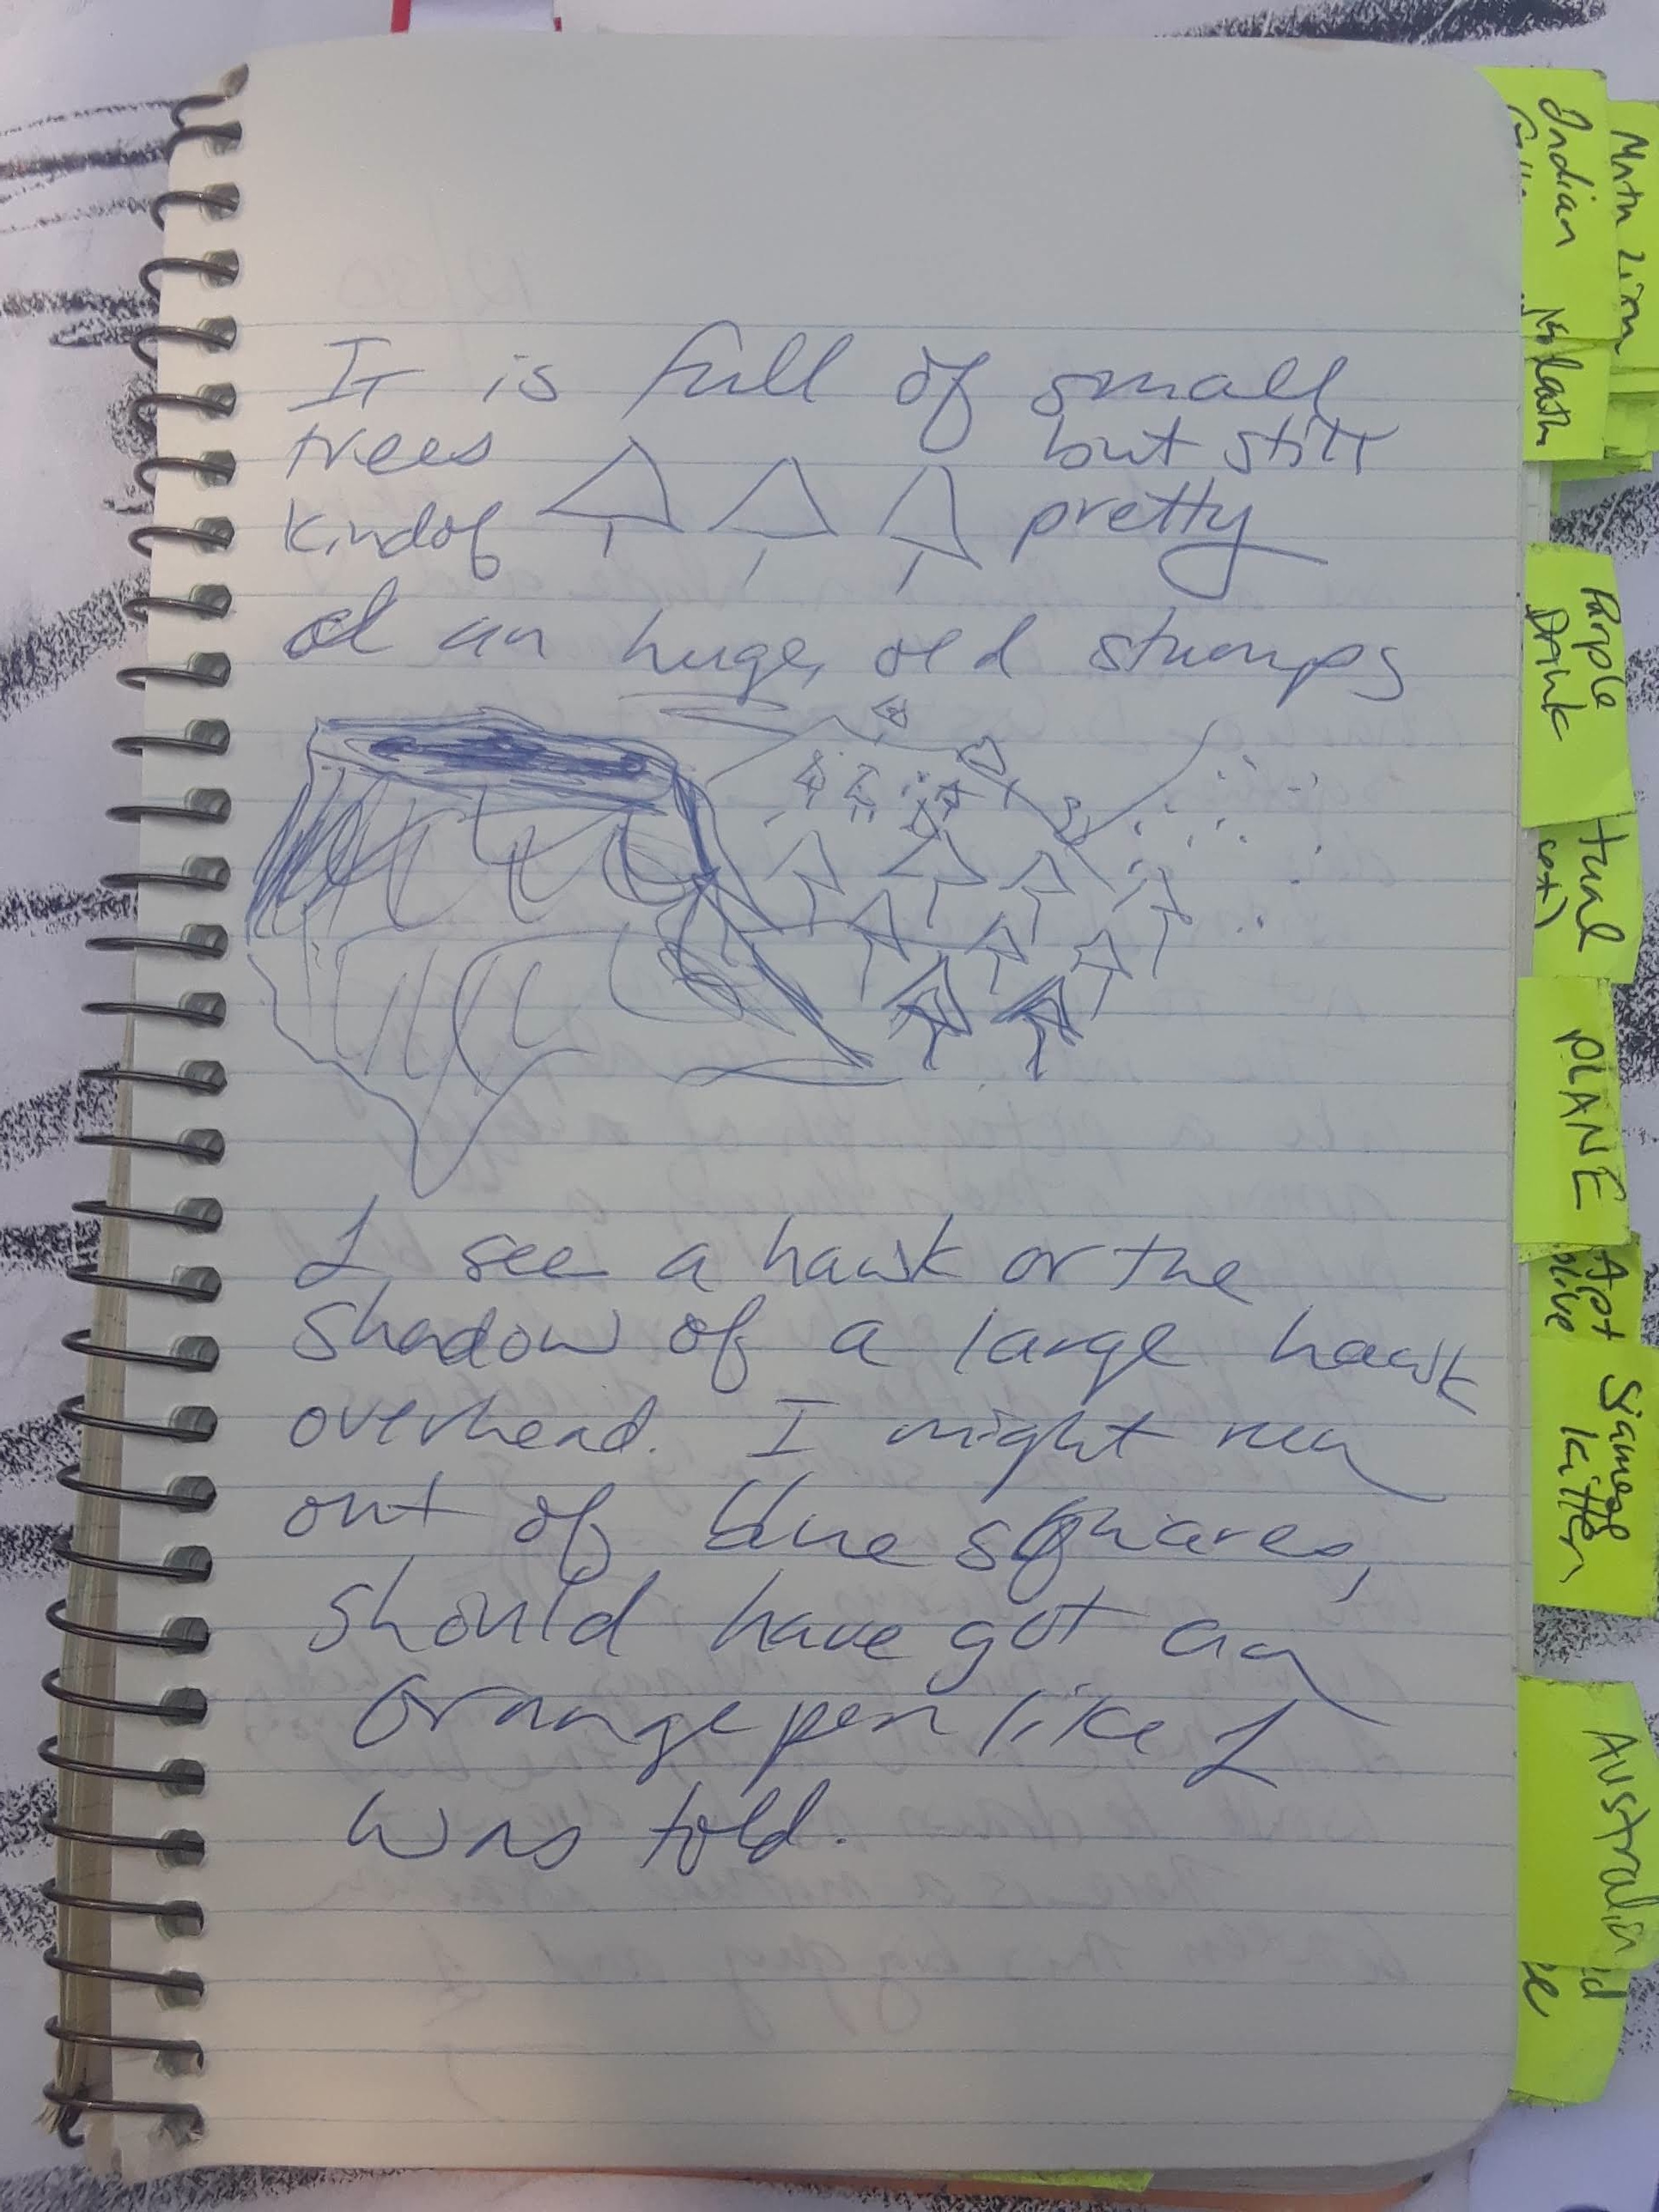 It is full of small
trees but still
kindof pretty
old an huge, old stumps
I see a hawk or the
shadow of a large hawk
overhead. I might run
out of blue squares,
should have got an
orange pen like I
was told.
Indian
Purple
Drink
PLANE
Apt
Siamese
Kitten
Australia